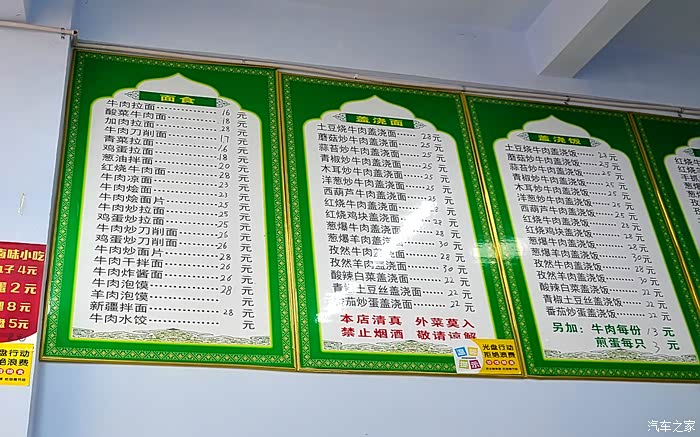 面食
牛肉拉面 16 元
酸菜牛肉面 18 元
加肉拉面 28 元
牛肉刀削面 17 元
青菜拉面 11 元
鸡蛋拉面 18 元
葱油拌面 20 元
红烧牛肉面 28 元
牛肉凉面 23 元
牛肉烩面 21 元
牛肉烩面片 25 元
牛肉炒拉面 25 元
鸡蛋炒拉面 25 元
牛肉炒刀削面 26 元
鸡蛋炒刀削面 26 元
牛肉炒面片 28 元
牛肉干拌面 26 元
牛肉炸酱面 26 元
牛肉泡馍 28 元
羊肉泡馍 元
新疆拌面 28 元
牛肉水饺 元
盖浇面
土豆烧牛肉盖浇面 28 元
蘑菇炒牛肉盖浇面 25 元
蒜苔炒牛肉盖浇面 25 元
青椒炒牛肉盖浇面 25 元
木耳炒牛肉盖浇面 25 元
洋葱炒牛肉盖浇面 25 元
西葫芦牛肉盖浇面 25 元
红烧牛肉盖浇面 元
红烧鸡块盖浇面 元
葱爆牛肉盖浇面 28 元
葱爆羊肉盖浇面 30 元
孜然牛肉盖浇面 28 元
孜然羊肉盖浇面 30 元
酸辣白菜盖浇面 22 元
青椒土豆丝盖浇面 22 元
番茄炒蛋盖浇面 22 元
本店清真 外菜莫入
禁止烟酒 敬请谅解
光盘行动
拒绝浪费
盖浇饭
土豆烧牛肉盖浇饭 28 元
蘑菇炒牛肉盖浇饭 25 元
蒜苔炒牛肉盖浇饭 25 元
青椒炒牛肉盖浇饭 25 元
木耳炒牛肉盖浇饭 25 元
洋葱炒牛肉盖浇饭 25 元
西葫芦牛肉盖浇饭 25 元
红烧牛肉盖浇饭 28 元
红烧鸡块盖浇饭 元
葱爆牛肉盖浇饭 28 元
葱爆羊肉盖浇饭 30 元
孜然牛肉盖浇饭 28 元
孜然羊肉盖浇饭 30 元
酸辣白菜盖浇饭 22 元
青椒土豆丝盖浇饭 22 元
番茄炒蛋盖浇饭 22 元
另加：牛肉每份 13 元
煎蛋每只 3 元
味小吃
子 4元
蛋 2元
8元
5元
盘行动
绝浪费
汽车之家